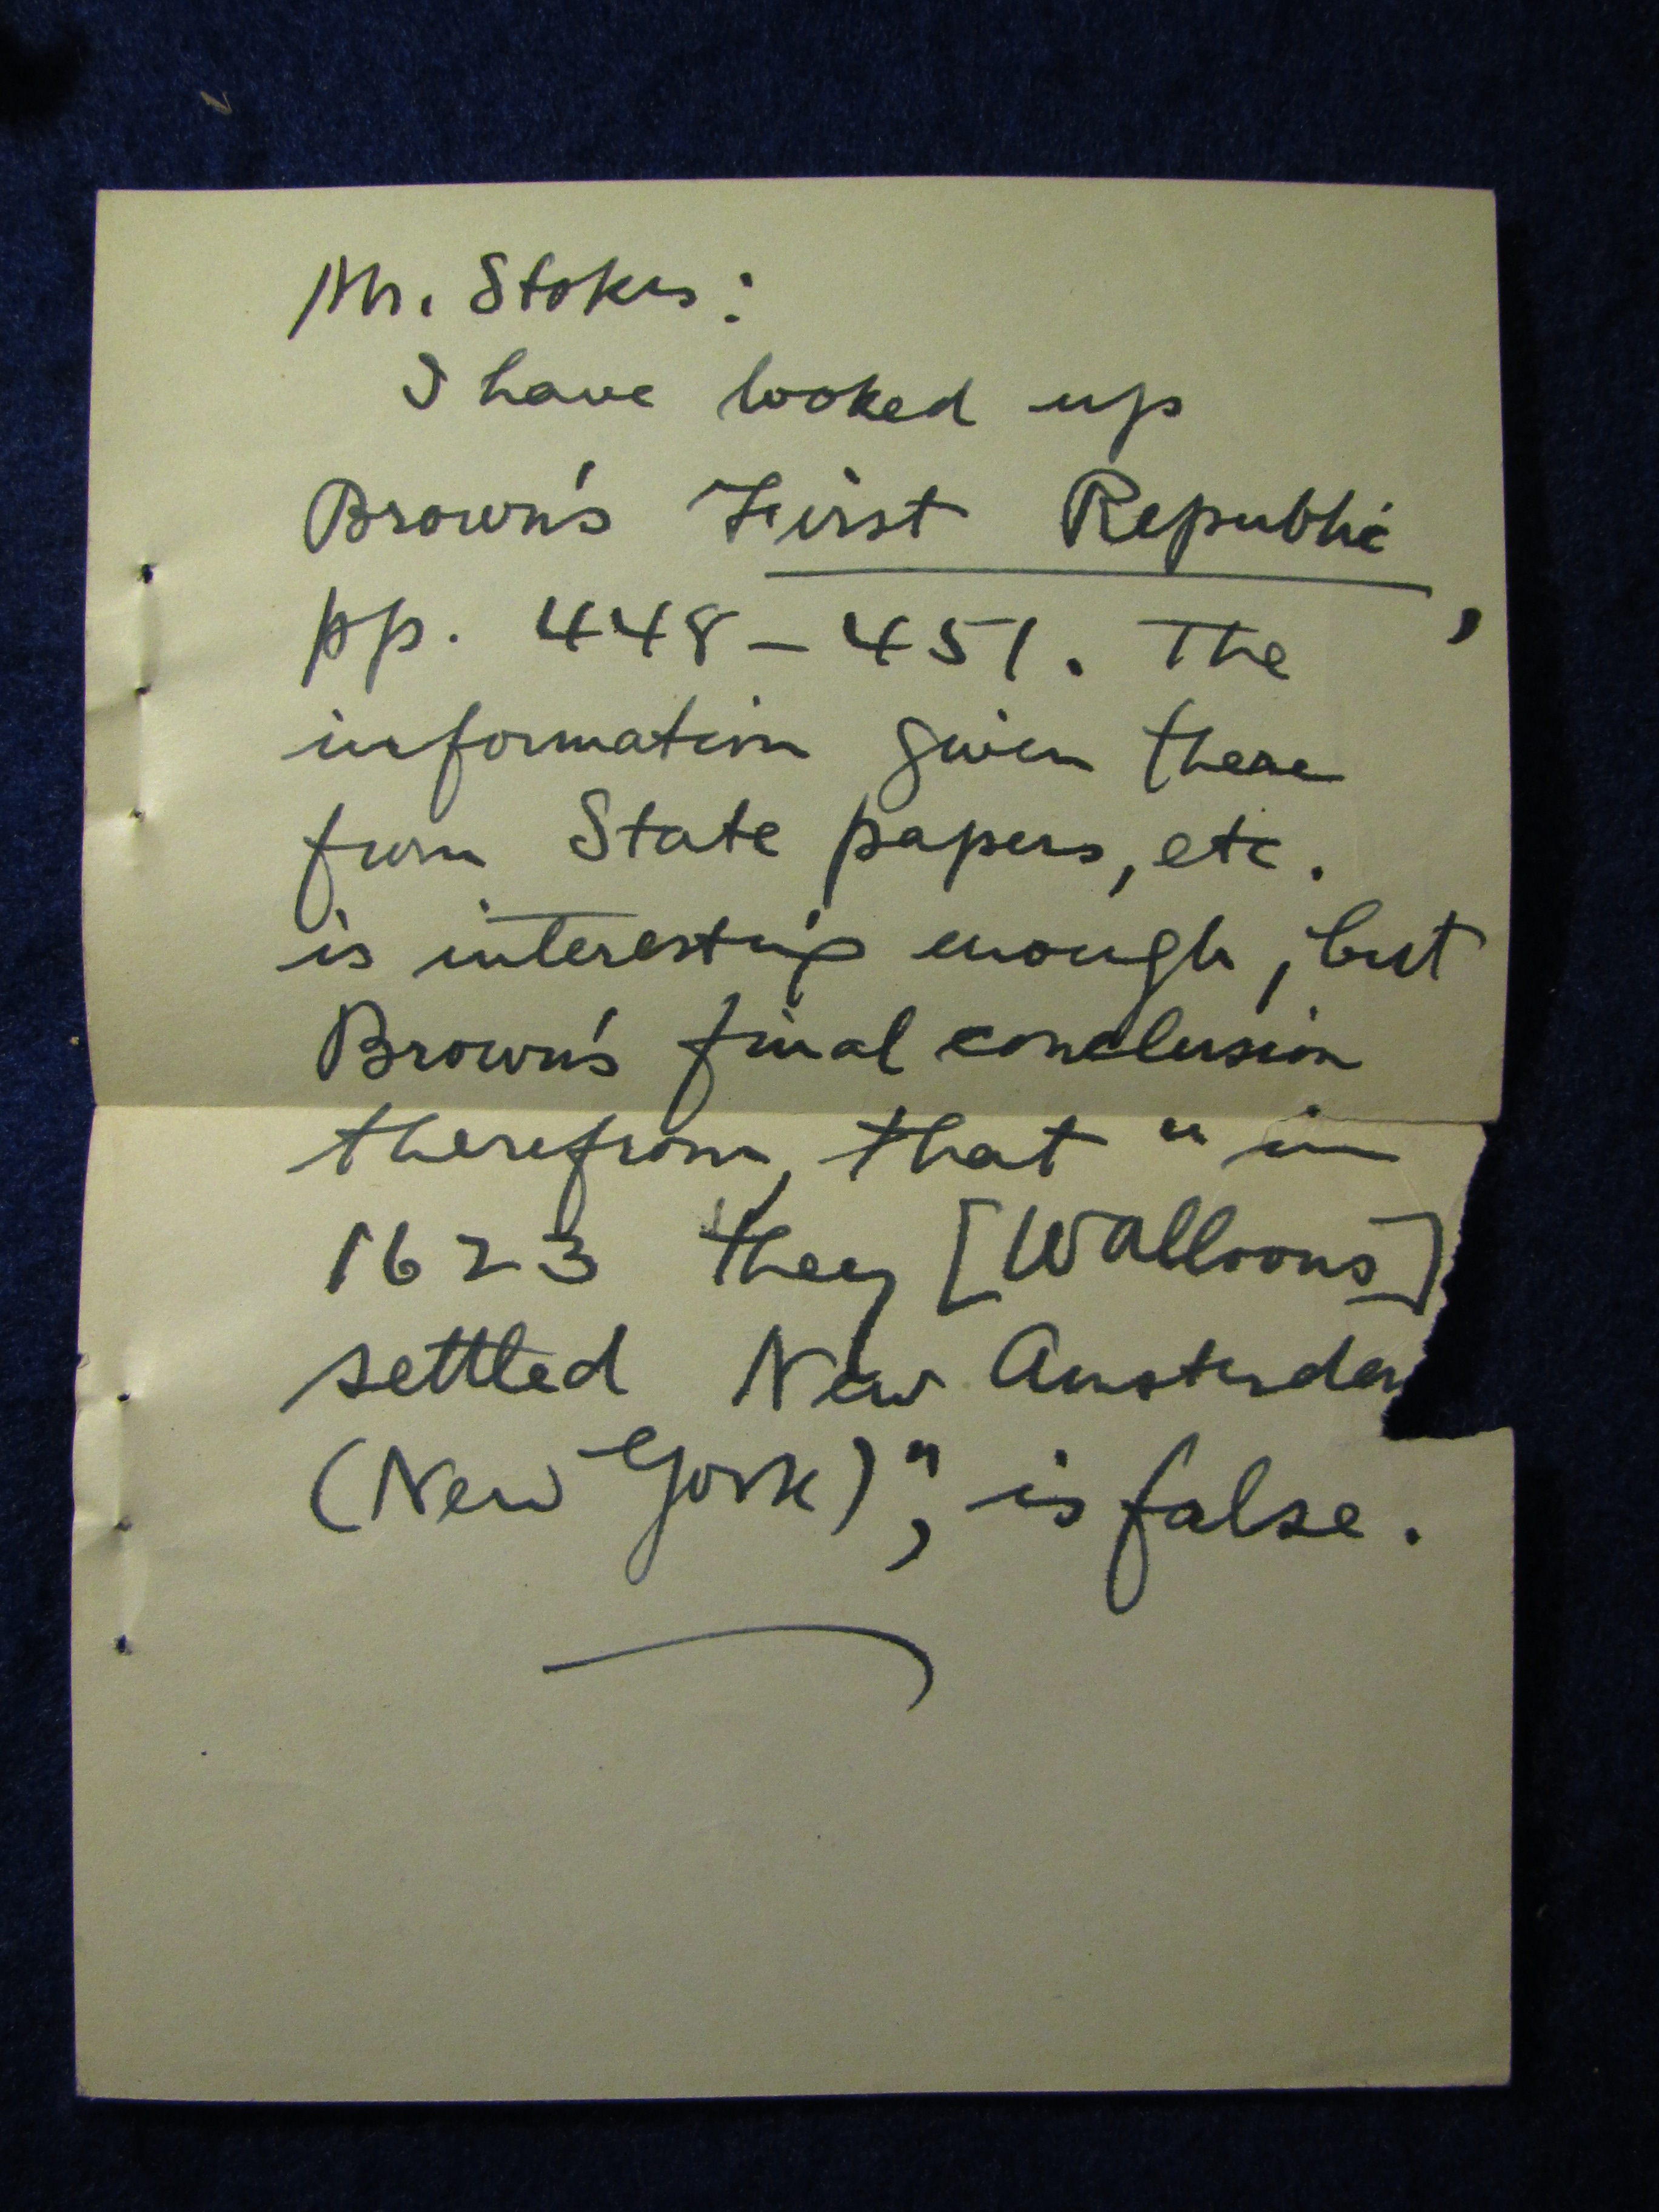 Mr. Stokes:
I have looked up
Brown's First Republic,
pp. 448-451. The
information given there
from State papers, etc.
is interesting enough, but
Brown's final conclusion
therefrom, that "in
1623 they [Walloons]
settled New Amsterdam
(New York)", is false.